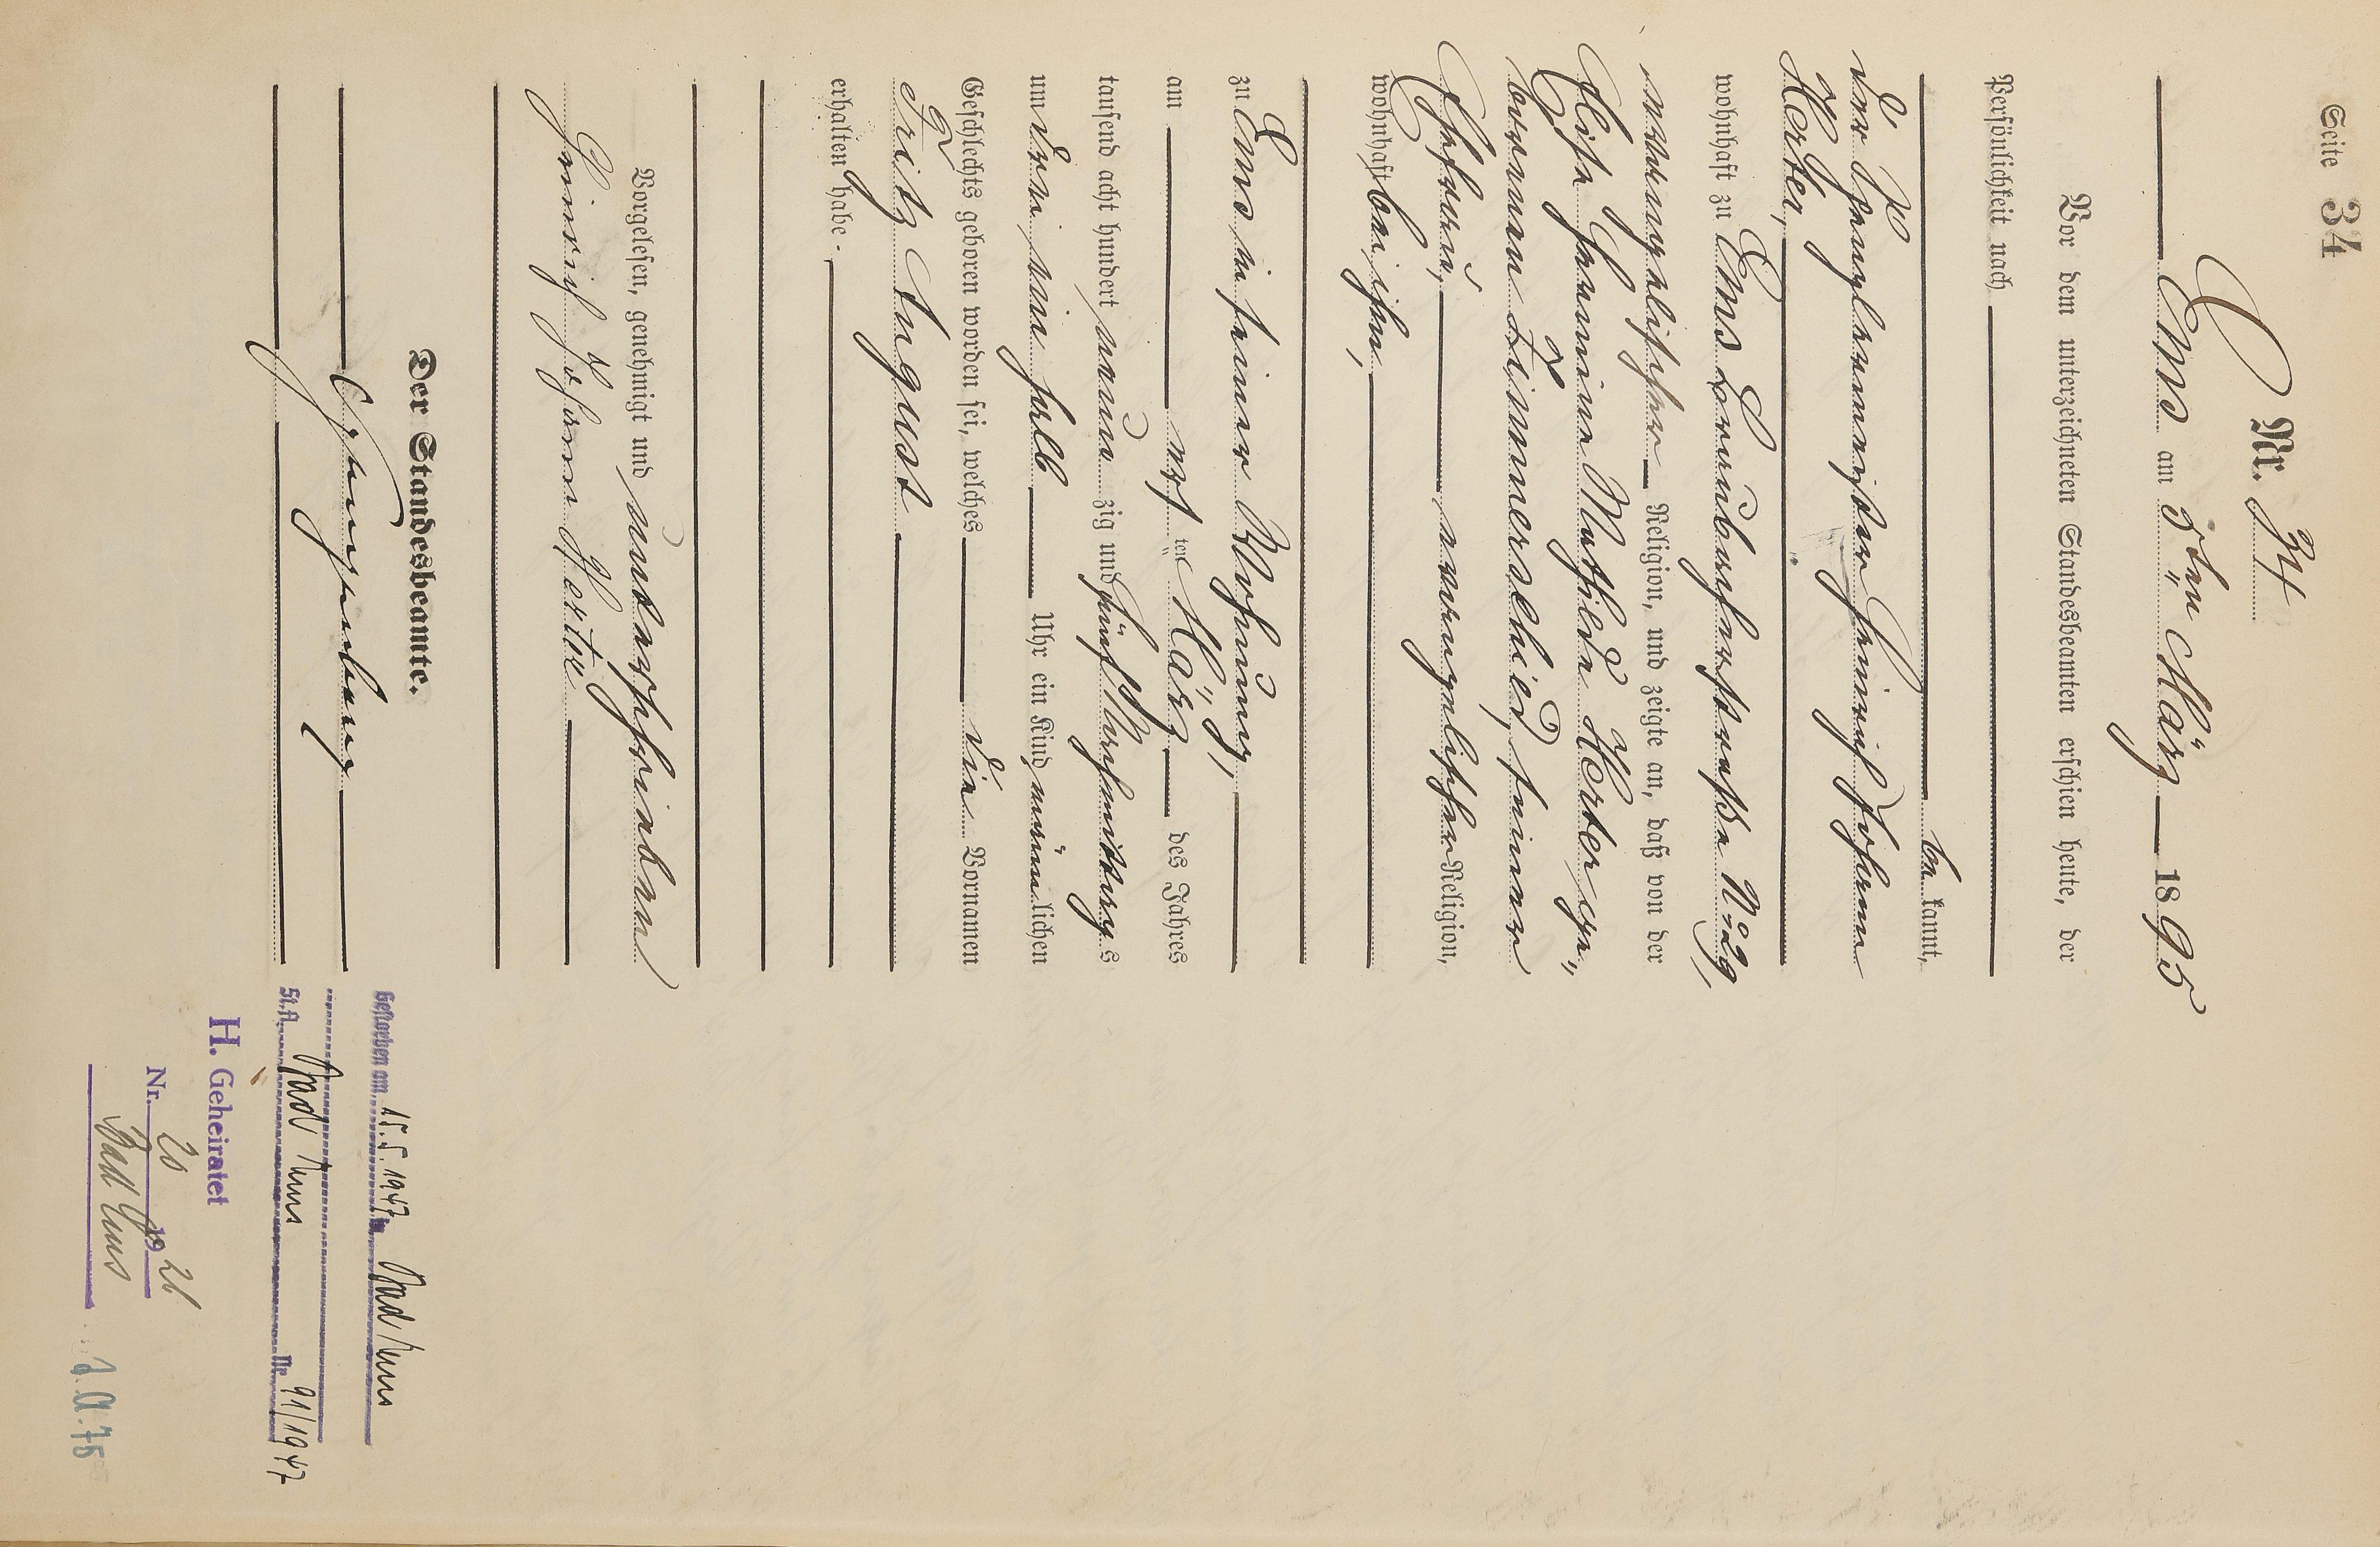 Seite 34
Nr. 34
Ems am 5ten März 1895
Vor dem unterzeichneten Standesbeamten erschien heute, der
Persönlichkeit nach
be kannt,
der Spenglermeister Heinrich Johann
Herter,
wohnhaft zu Ems No 29,
evangelischer Religion, und zeigte an, daß von der
Elise Hermine Mathilde Herter, ge-
borenen Zimmerschied, seiner
Ehefrau, evangelischer Religion,
wohnhaft bei ihm,
zu Ems in seiner Wohnung,
am ersten März des Jahres
tausend acht hundert neunzig und fünf Nachmittags
um drei ein halb Uhr ein Kind männlichen
Geschlechts geboren worden sei, welches die Vornamen
Fritz August
erhalten habe.
Vorgelesen, genehmigt und unterschrieben
Heinrich Johann Herter
Der Standesbeamte.
Spangenberg
Gestorben am 15.5.1947 in Bad Ems
St.A. Bad Ems Nr. 91/1947
H. Geheiratet
Nr. 20 1921
Bad Ems